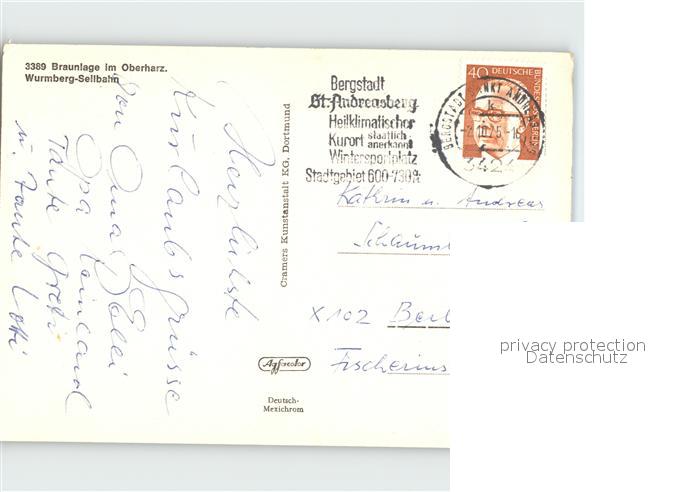 3389 Braunlage im Oberharz.
Wurmberg-Seilbahn
Herzlichste
Kurlaubsgrüsse
von Oma
Opa
Tante Greti
u. Tante Lotti
Cramers Kunstanstalt KG, Dortmund
Agfacolor
Deutsch-
Mexichrom
Bergstadt
St-Andreasberg
Heilklimatischer
Kurort staatlich
anerkannt
Wintersportplatz
Stadtgebiet 600-730m
40 DEUTSCHE BUNDESPOST
BERGSTADT SANKT ANDREASBERG
3424
Kathrin u. Andreas
X 102 Berl
Fischerins
privacy protection
Datenschutz